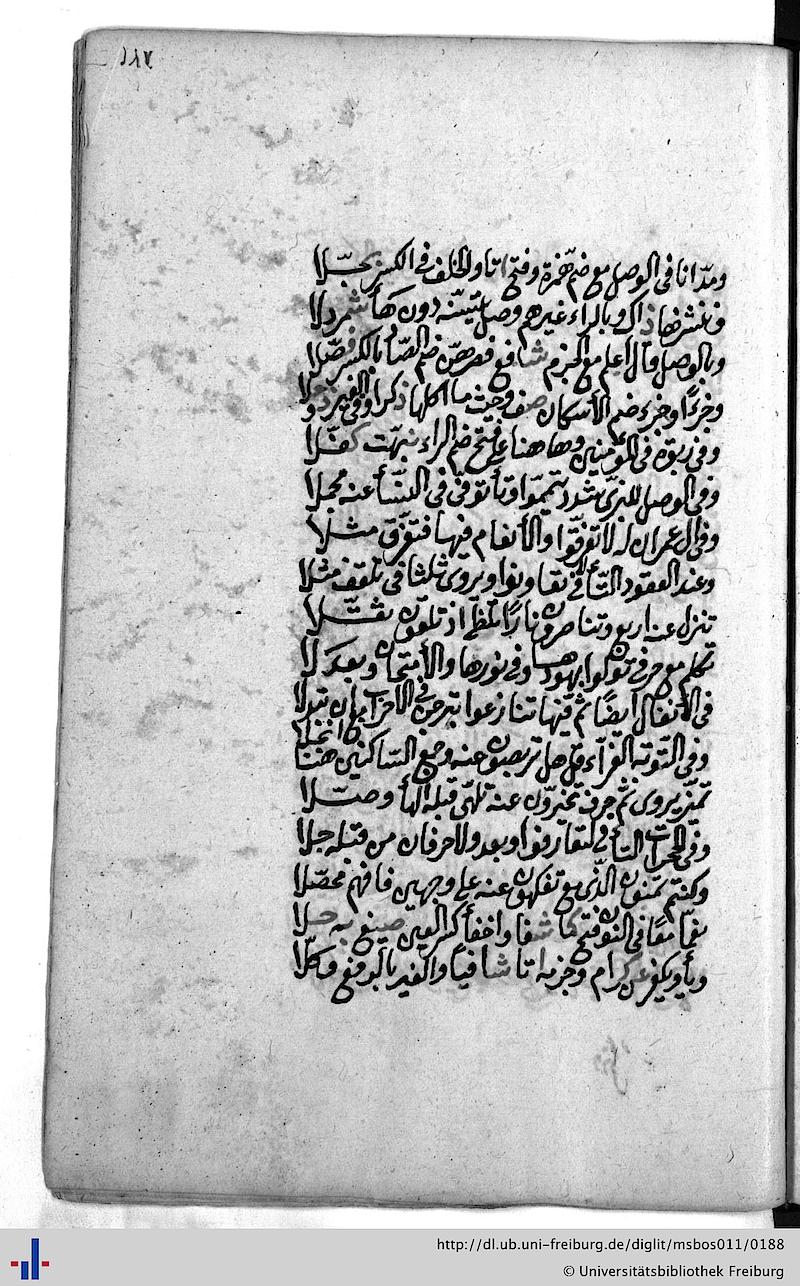 ١٨٧
ومدّ انا في الوصل مع ضمّ همزة وفتح اتا والخلف في الكسر بجّلا
وننشرها ذاك وبالراء غيرهم وصل يتسنّه دون هأ شمردلا
وبالوصل قال اعلم مع الجزم شافع فصرهنّ ضم الصّاد بالكسر فصّلا
وجزءًا وجزء ضم الأسكان صف وحيث ما اكلها ذكرا وفي الغير ذو حلا
وفي ربوة في المؤمنين وها هنا على فتح ضم الراء نبّهت كفّلا
وفي الوصل للبزّي شدد تيمّموا وتأ توفّى في النسّأ عنه مجملا
وفي ال عمران له لا تفرّقوا والأنعام فيها فتفرّق مثّلا
وعند العقود التّأ في لا تعاونوا ويروي ثلثا في تلقّف مثّلا
تنزّل عنه اربع وتناصرون نارًا تلظّى اذ تلقّون ثقّلا
تكلّم مع حرفي تولّوا بهودها وفي نورها والأمتحان وبعد لا
في الأنفال ايضًا ثم فيها تنازعوا تبرّجن في الاحزاب مع ان تبدّلا
وفي التّوبة الغرّاء قل هل تربّصون عنه وجمع السّاكنين هنا انجلا
تميّز يروي ثم حرف تخيّرون عنه تلهّى قبله الهأ وصّلا
وفي الحجرات التأ في لتعارفوا وبعد ولا حرفان من قبله جلا
وكنتم تمنّون الذي مع تفكّهون عنه على وجهين فافهم محصّلا
نعمّا معًا في النون فتح كما شفا واخفأ كسر العين صيغ به حلا
ويأ ويكفّر عن كرام وجزمه اتا شافيا والغير بالرفع وكّلا
http://dl.ub.uni-freiburg.de/diglit/msbos011/0188
© Universitätsbibliothek Freiburg